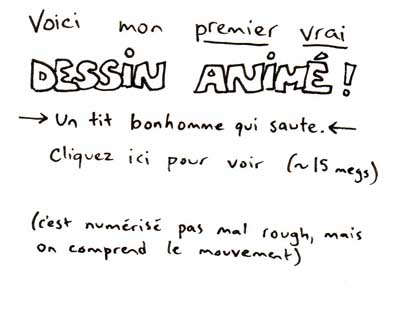 Voici mon premier vrai
DESSIN ANIMÉ!
→ Un tit bonhomme qui saute. ←
Cliquez ici pour voir (~15 megs)
(c'est numérisé pas mal rough, mais
on comprend le mouvement)